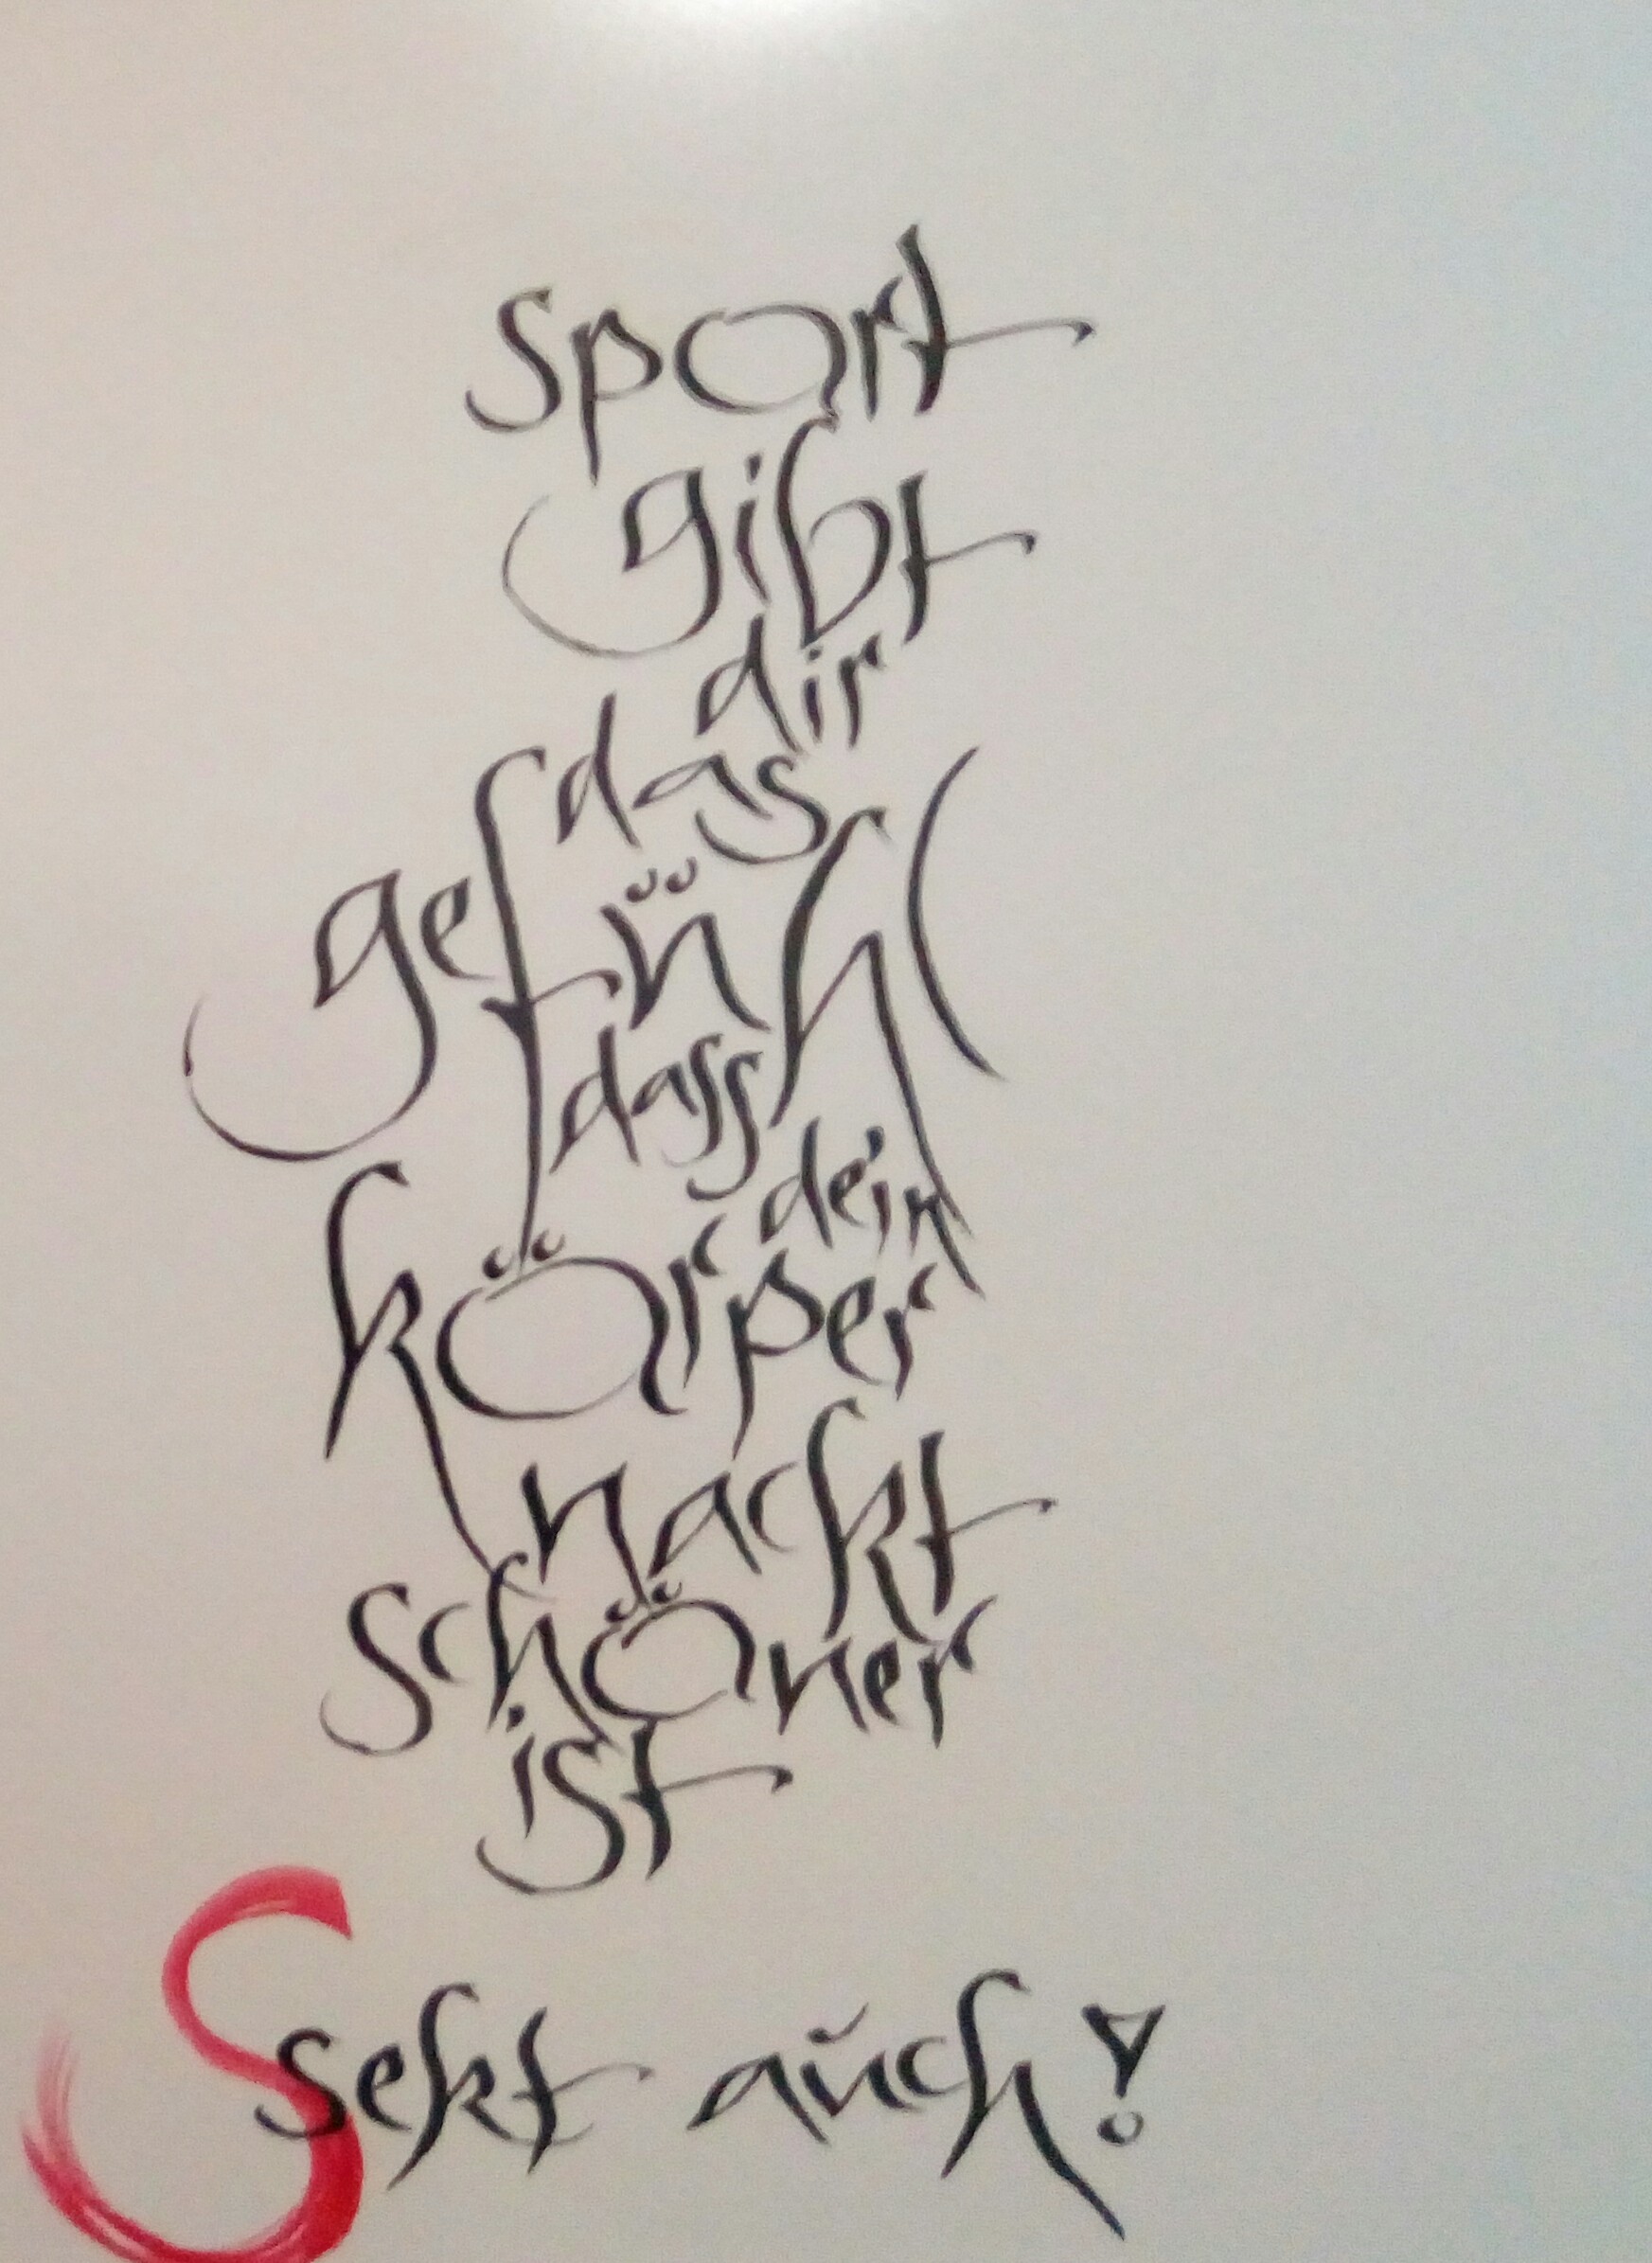 sport
gibt
dir
das
gefühl
dass
dein
körper
nackt
schöner
ist
S
sekt auch!